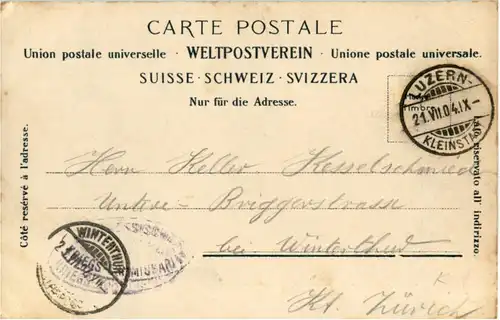 CARTE POSTALE
Union postale universelle · WELTPOSTVEREIN · Unione postale universale.
SUISSE · SCHWEIZ · SVIZZERA
Nur für die Adresse.
LUZERN-
21.VII.04.IX-
KLEINSTADT
Côté reservé à l'adresse.
Lato riservato all' indirizzo.
Herr Keller, Kesselschmied
Untere-Briggerstrasse
bei Winterthur
Kt. Zürich
WINTERTHUR